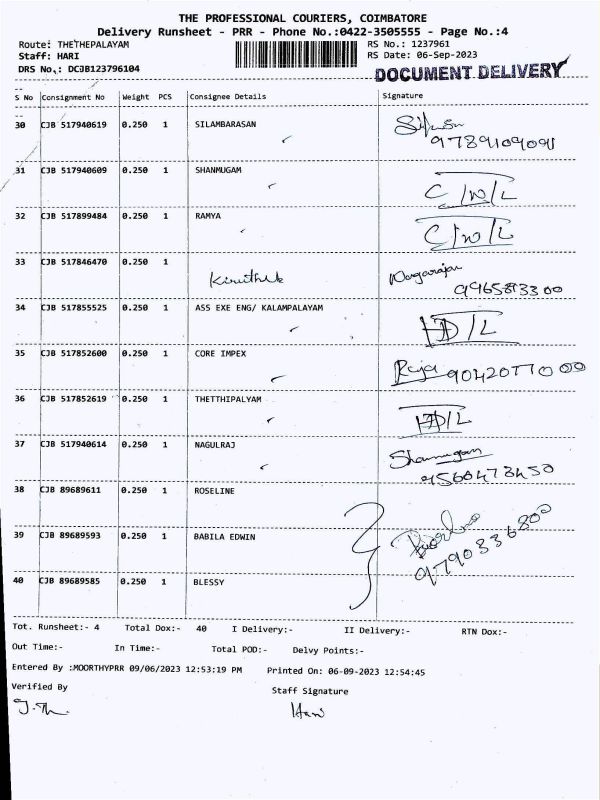 THE PROFESSIONAL COURIERS, COIMBATORE
Delivery Runsheet - PRR - Phone No.:0422-3505555 - Page No.:4
Route: THETHEPALAYAM RS No.: 1237961
Staff: HARI RS Date: 06-Sep-2023
DRS No.: DCJB123796104 DOCUMENT DELIVERY
S No Consignment No Weight PCS Consignee Details Signature
30 CJB 517940619 0.250 1 SILAMBARASAN
9789109091
31 CJB 517940609 0.250 1 SHANMUGAM C/W/L
32 CJB 517899484 0.250 1 RAMYA C/W/L
33 CJB 517846470 0.250 1 Kiruthik Nagarajan
9965813300
34 CJB 517855525 0.250 1 ASS EXE ENG/ KALAMPALAYAM HD/L
35 CJB 517852600 0.250 1 CORE IMPEX Raja 9042077000
36 CJB 517852619 0.250 1 THETTHIPALYAM HD/L
37 CJB 517940614 0.250 1 NAGULRAJ Shanmugam
38 CJB 89689611 0.250 1 ROSELINE
39 CJB 89689593 0.250 1 BABILA EDWIN
9790336800
40 CJB 89689585 0.250 1 BLESSY
Tot. Runsheet:- 4 Total Dox:- 40 I Delivery:- II Delivery:- RTN Dox:-
Out Time:- In Time:- Total POD:- Delvy Points:-
Entered By :MOORTHYPRR 09/06/2023 12:53:19 PM Printed On: 06-09-2023 12:54:45
Verified By Staff Signature
Hari